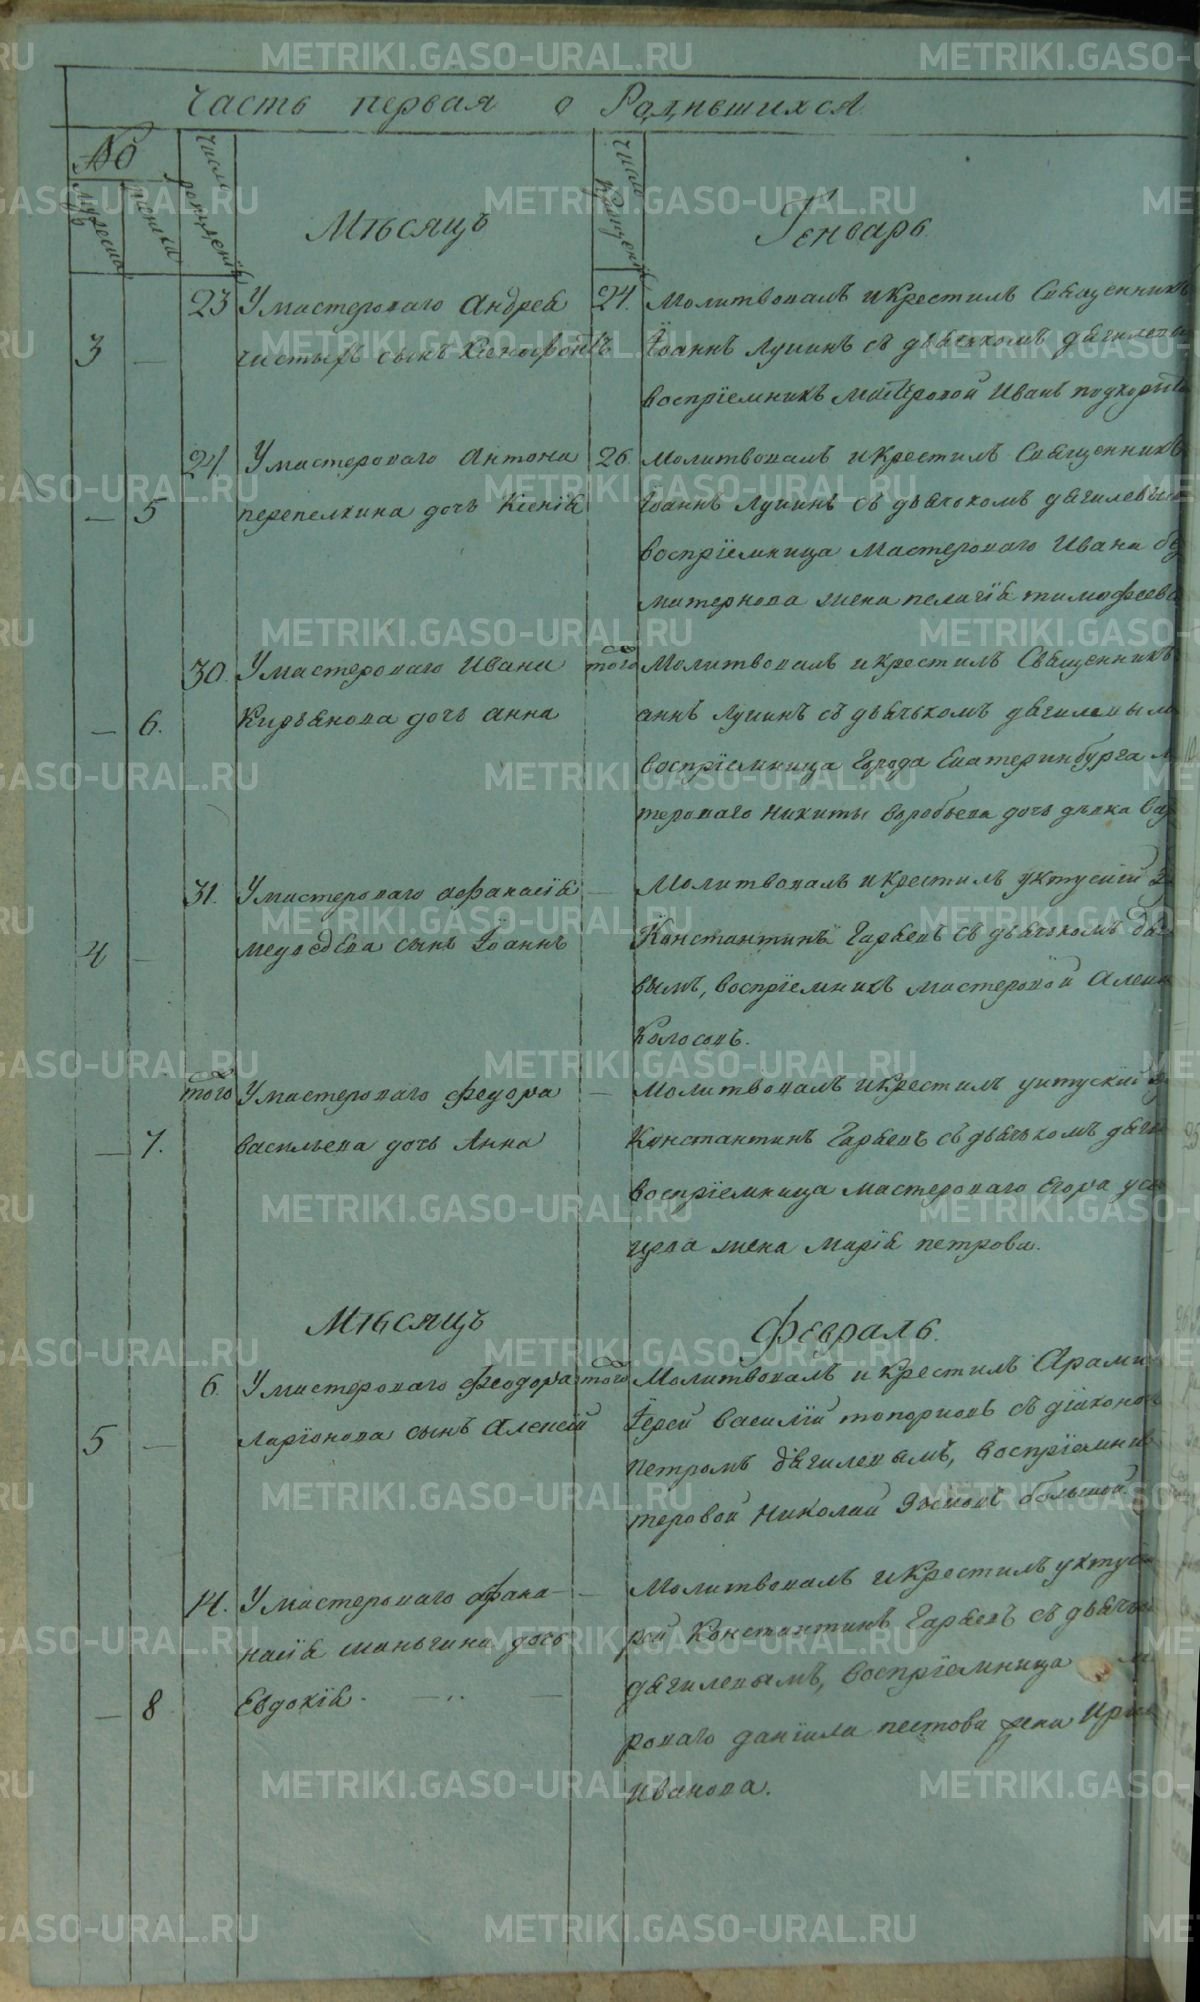 Часть первая о Родившихся
№
мужеска
женска
число рожденія
Мѣсяцъ
число крещенія
Генварь
3 — 23 У мастероваго Андрея
чистыхъ сынъ Ксенофонтъ
24. Молитвовалъ и крестилъ Священникъ
Іоаннъ Лучинъ съ дьячькомъ
воспріемникъ мастеровой Иванъ
— 5 24. У мастероваго Антона
перепелкина дочь Ксенія
26 Молитвовалъ и крестилъ Священникъ
Іоаннъ Лучинъ съ дьячькомъ
воспріемница Мастероваго Ивана
матернова жена пелагія тимофеева
— 6. 30. У мастероваго Ивана
Кирьянова дочь анна
того Молитвовалъ и крестилъ Священникъ
аннъ Лучинъ съ дьячькомъ дягилевым
воспріемница Города Екатеринбурга
тероваго Никиты Воробьева дочь дѣвка
4 — 31. У мастероваго афанасія
медведева сынъ Іоаннъ
— Молитвовалъ и крестилъ уктуский
Константинъ Гаряевъ съ дьячькомъ
вымъ, воспріемникъ мастеровой
Колосовъ.
— 7. того У мастероваго Федора
васильева дочь Анна
— Молитвовалъ и крестилъ уктуский
Константинъ Гаряевъ съ дьячькомъ
воспріемница мастероваго Егора
жена Марія петрова.
Мѣсяцъ
Февраль.
5 — 6 У мастероваго Феодора
Ларіонова сынъ Алексій
того Молитвовалъ и Крестилъ Арами
Іерей Василій топорковъ съ діакономъ
петромъ дягилевымъ, воспріемник
теровой Николай большой
— 8 14. У мастероваго афана-
насія дочь
Евдокія.
— Молитвовалъ и Крестилъ
рей Константинъ Гаряевъ съ дьячь
дягилевымъ, воспріемница
роваго даніила пестова жена
Иванова.
METRIKI.GASO-URAL.RU